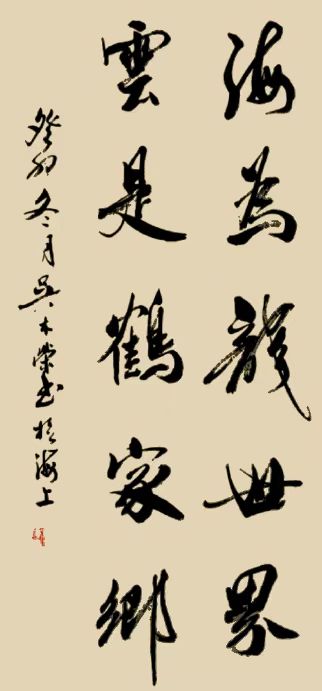 海為龍世界
雲是鶴家鄉
癸卯冬月吳木榮书於海上